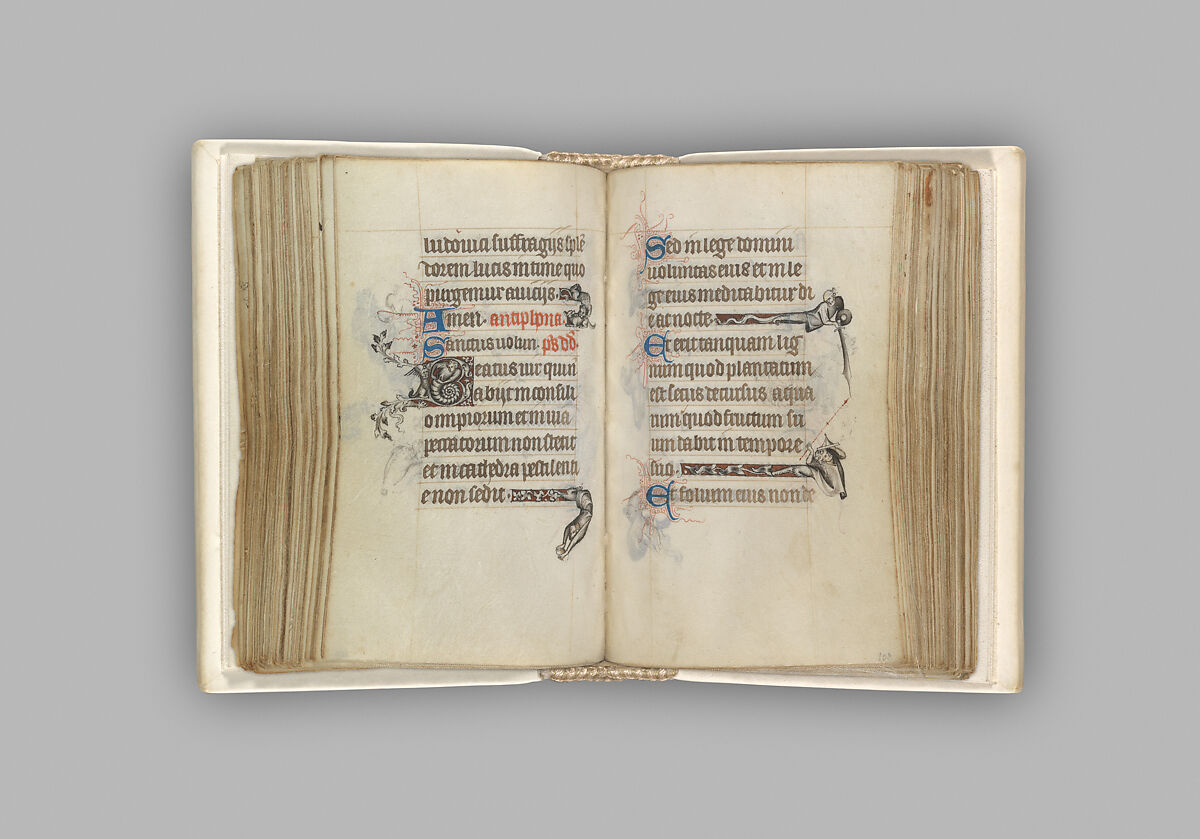 ludouici suffragijs sple
dorem lucis intime quo
purgemur a uicijs.
Amen. antiphona.
Sanctus uolun. ps dd.
Beatus uir qui n
abijt in consili
o impiorum et in uia
peccatorum non stetit
et in cathedra pestilenti
e non sedit.
Sed in lege domini
uoluntas eius et in le
ge eius meditabitur di
e ac nocte.
Et erit tanquam lig
num quod plantatum
est secus decursus aqua
rum quod fructum su
um dabit in tempore
suo.
Et folium eius non de
103